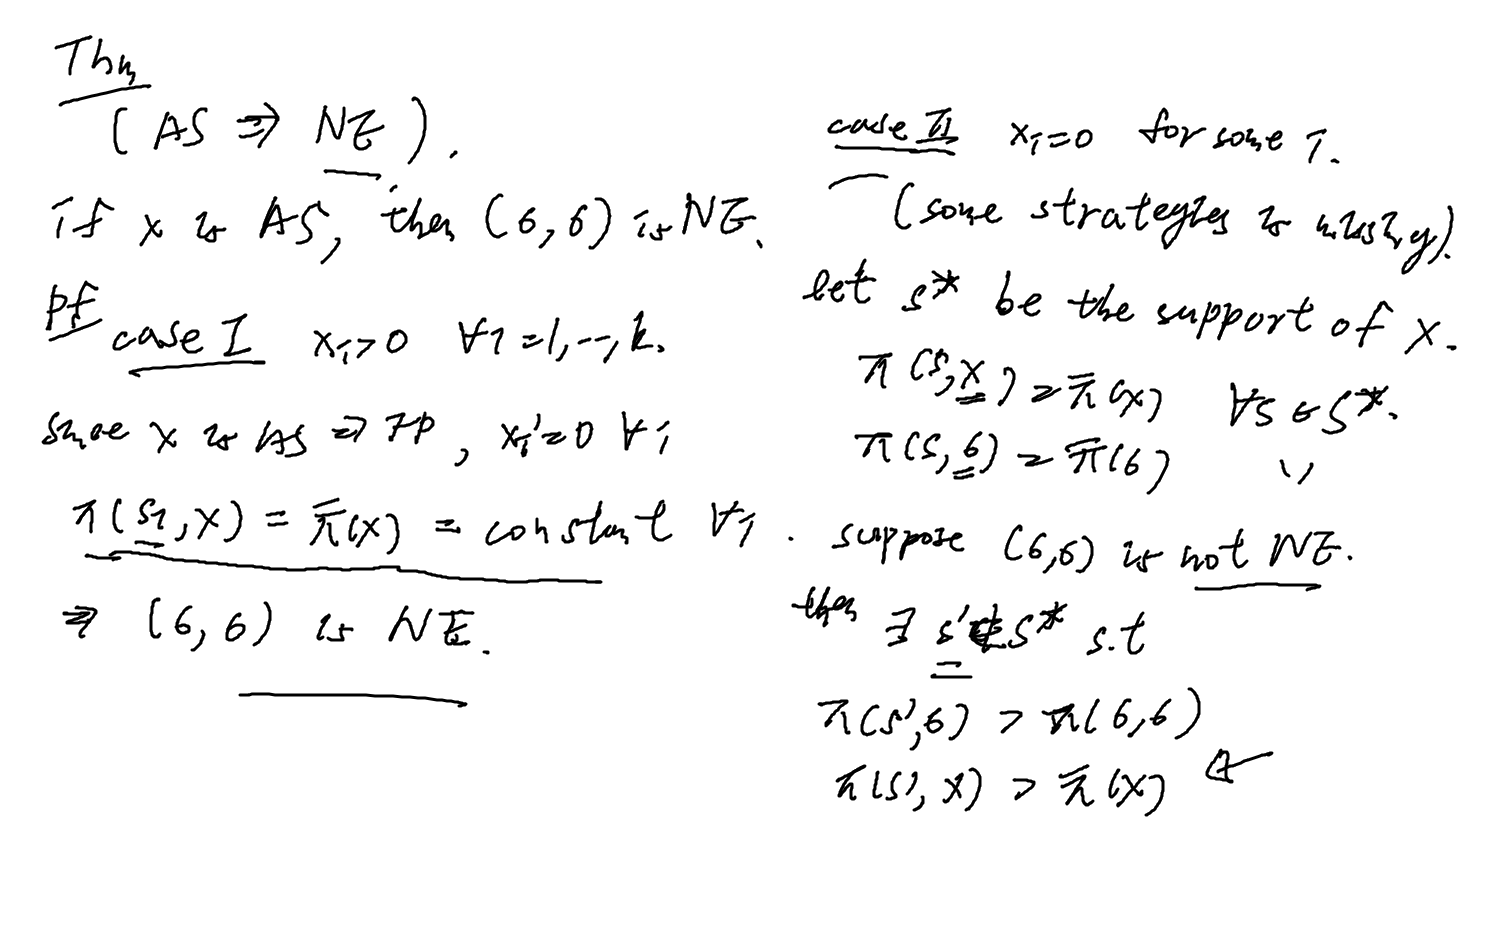 Thm
(AS ⇒ NE).
if x is AS, then (6, 6) is NE.
pf
case I xi>0 ∀i=1,--,k.
since x is AS ⇒ FP, xi'=0 ∀i
π(si,x) = π̄(x) = constant ∀i.
⇒ (6, 6) is NE.
case II xi=0 for some i.
(some strategies is missing).
let s* be the support of x.
π(s,x) = π̄(x) ∀s∈S*.
π(s,6) = π̄(6) ''
suppose (6,6) is not NE.
then ∃ s'∉S* s.t
π(s',6) > π(6,6)
π(s',x) > π̄(x) ←